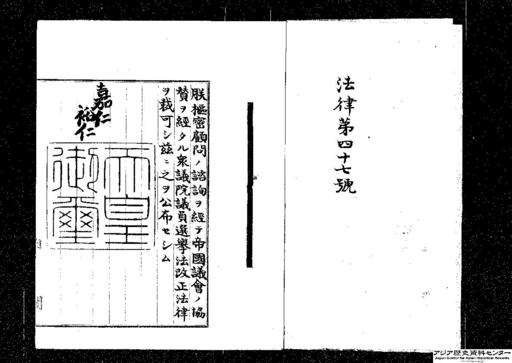 法律第四十七號
朕樞密顧問ノ諮詢ヲ経テ帝國議會ノ協
賛ヲ経タル衆議院議員選擧法改正法律
ヲ裁可シ茲ニ之ヲ公布セシム
嘉仁
裕仁
天皇
御璽
アジア歴史資料センター
Japan Center for Asian Historical Records